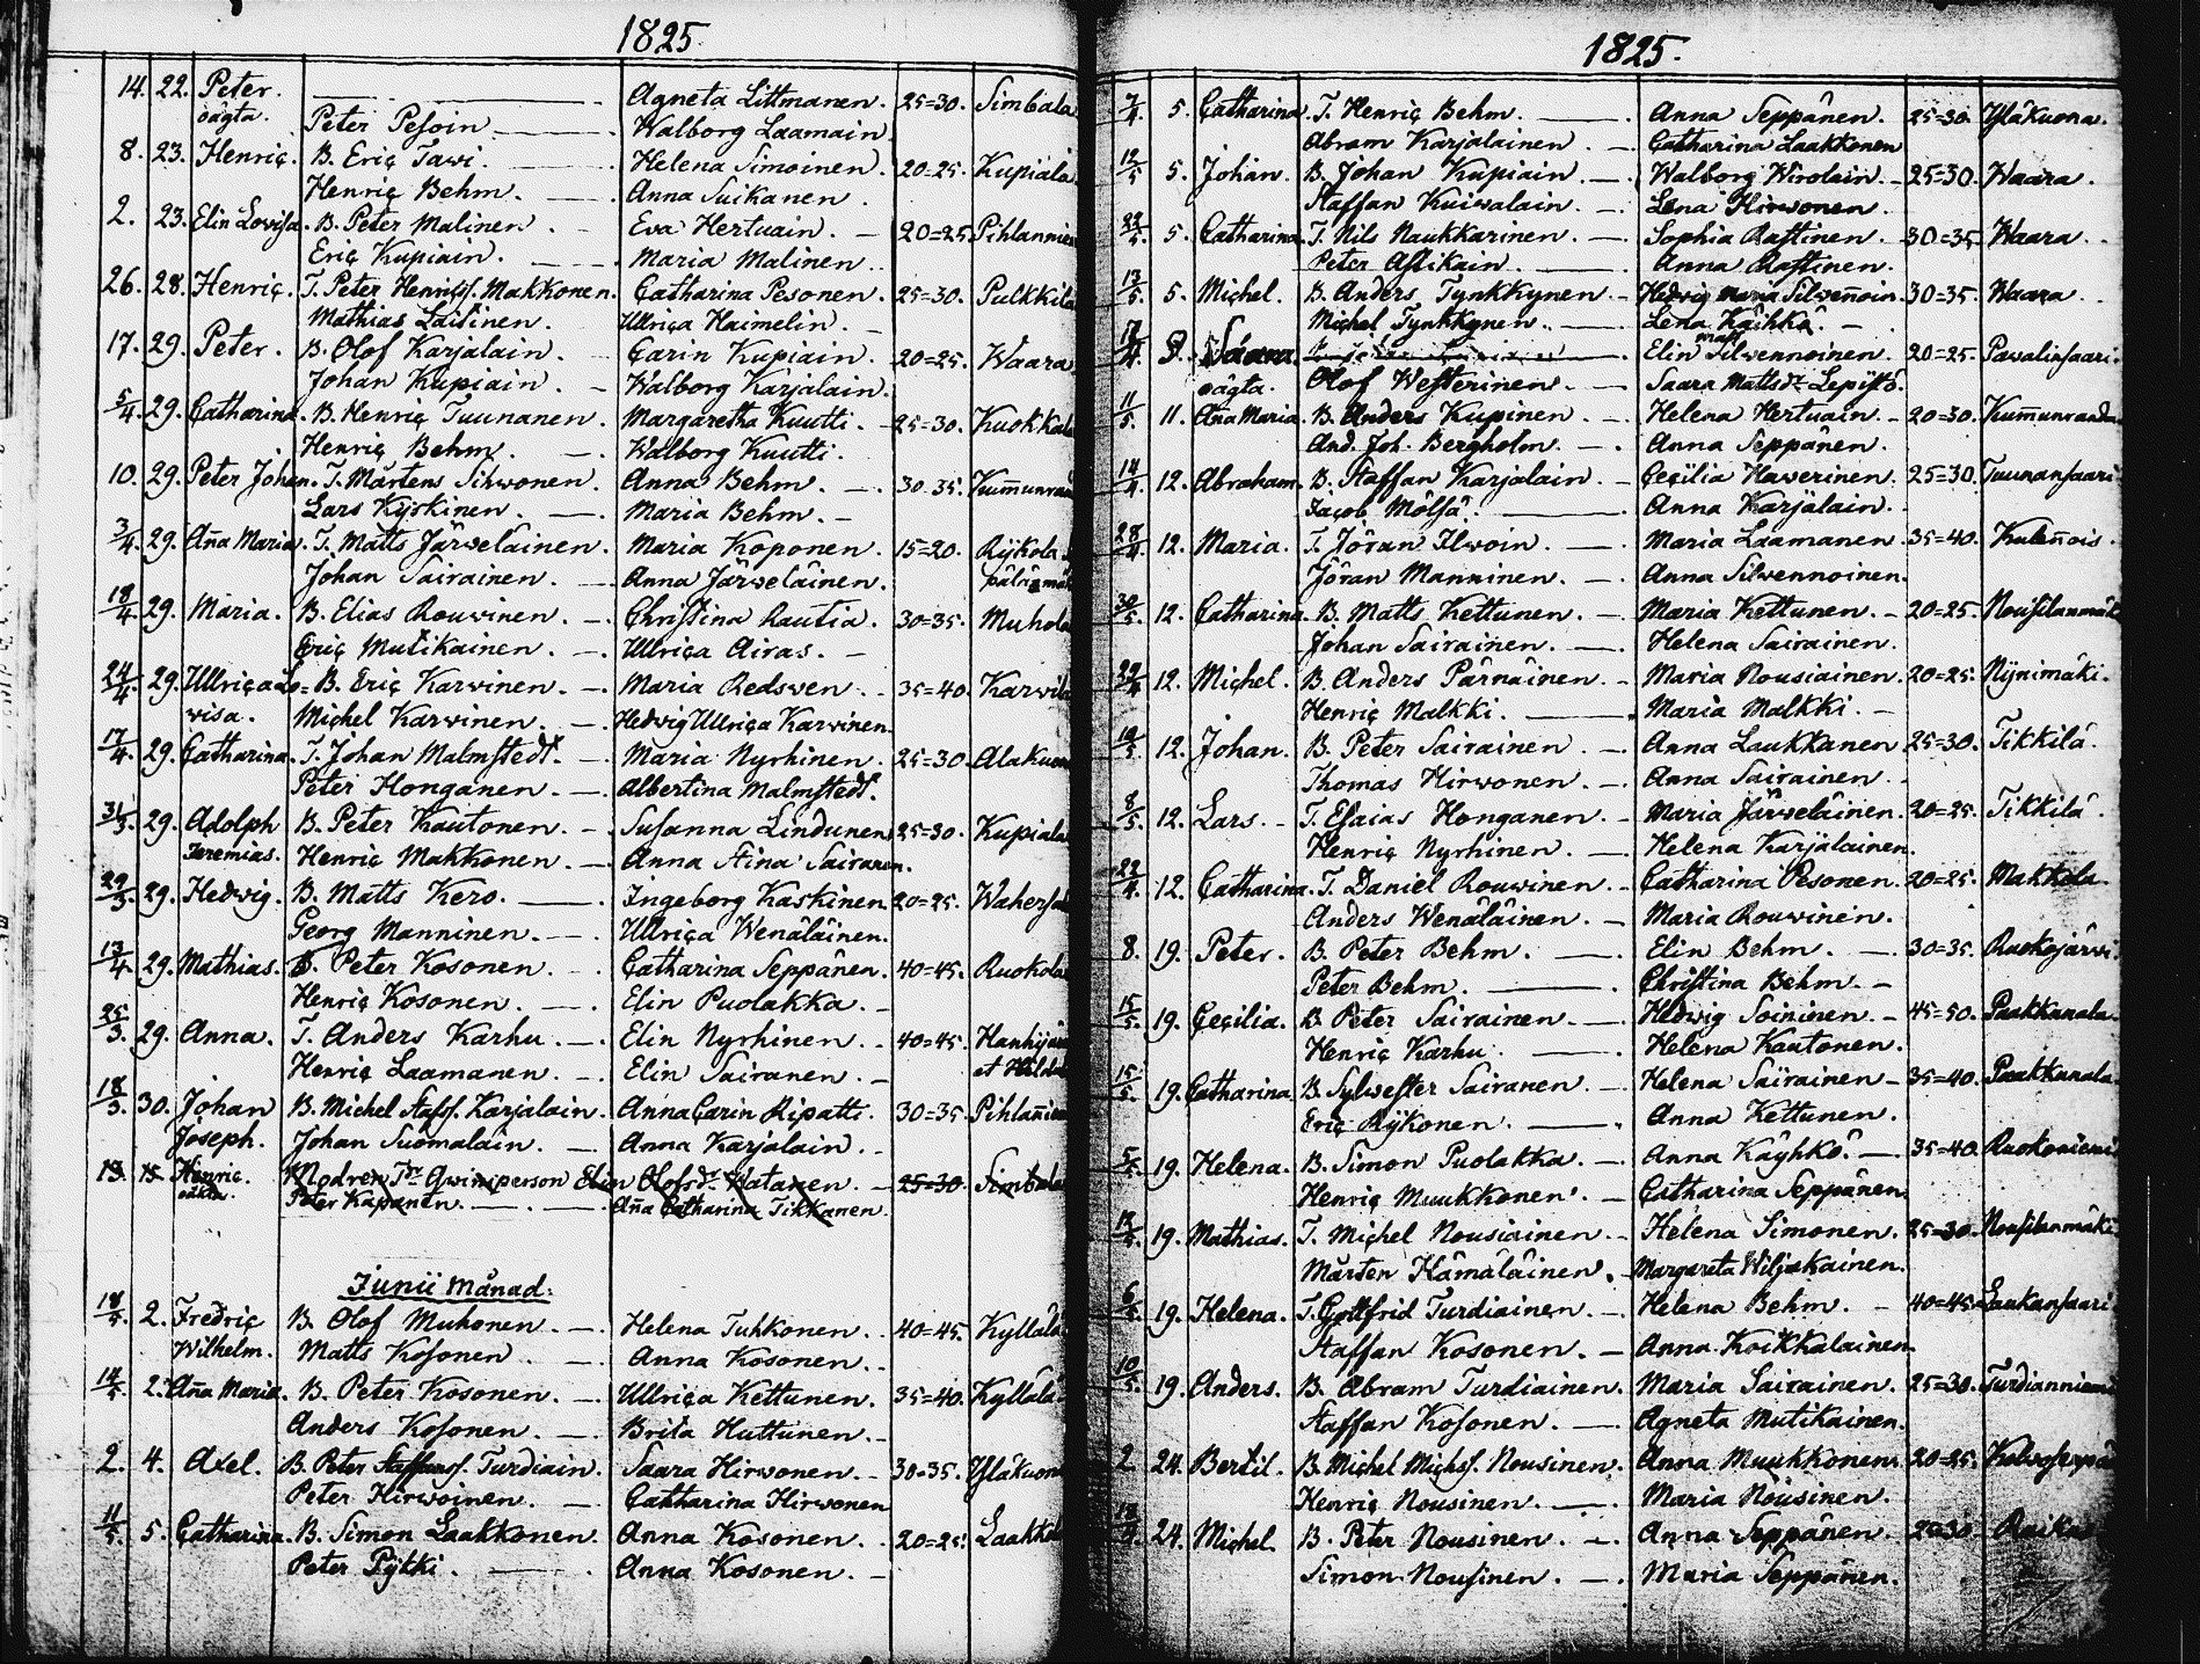 1825.
14. 22. Peter. Agneta Littmanen. 25=30. Simbala
oägta. Peter Pesoin Walborg Laamain
8. 23. Henric. B. Eric Tawi. Helena Simoinen. 20=25. Kupiala.
Henric Behm. Anna Suikanen.
2. 23. Elin Lovisa. B. Peter Malinen. Eva Hertuain. 20=25. Pihlannie
Eric Kupiain. Maria Malinen.
26. 28. Henric. T. Peter Henricss. Makkonen. Catharina Pesonen. 25=30. Pulkkila
Mathias Laitinen. Ullrica Haimelin.
17. 29. Peter. B. Olof Karjalain. Carin Kupiain. 20=25. Waara
Johan Kupiain. Walborg Karjalain.
5/4. 29. Catharina. B. Henric Tuunanen. Margaretha Kuutti. 25=30. Kuokkala
Henric Behm. Walborg Kuutti.
10. 29. Peter Johan. T. Mårtens Sihvonen. Anna Behm. 30.35. Kum̄unran
Lars Kyskinen. Maria Behm.
3/4. 29. An̄a Maria. T. Matts Järweläinen. Maria Koponen. 15=20. Rÿkola
Johan Sairainen. Anna Järweläinen.
18/4. 29. Maria. B. Elias Rouwinen. Christina Rautia. 30=35. Muhola
Eric Mutikainen. Ullrica Airas.
24/4. 29. Ullrica Lo= B. Eric Karwinen. Maria Redswen. 35=40. Karwila
wisa. Michel Karwinen. Hedwig Ullrica Karwinen.
17/4. 29. Catharina. T. Johan Malmstedt. Maria Nyrhinen. 25=30. Alakuon
Peter Honganen. Albertina Malmstedt.
31/3. 29. Adolph B. Peter Kautonen. Susanna Lindunen 25=30. Kupiala
Jeremias. Henric Makkonen. Anna Stina Sairanen.
29/3. 29. Hedwig. B. Matts Kero. Ingeborg Kaskinen. 20=25. Wahersa
Georg Manninen. Ullrica Wenäläinen.
13/4. 29. Mathias. B. Peter Kosonen. Catharina Seppänen. 40=45. Ruokola
Henric Kosonen. Elin Puolakka.
25/3. 29. Anna. T. Anders Karhu. Elin Nyrhinen. 40=45. Hanhijär
Henric Laamanen. Elin Sairanen. et Hilda
18/3. 30. Johan B. Michel Stafss. Karjalain. Anna Carin Ripatti. 30=35. Pihlan̄ie
Joseph. Johan Suomalain. Anna Karjalain.
13. 15. Henric. Modren Tr. Qwinsperson Elin Olofsdr. Watanen. 25=30. Simbala
oäkta. Peter Kapanen. An̄a Catharina Tikkanen.
Junii Månad.
18/5. 2. Fredric B. Olof Muhonen. Helena Tuhkonen. 40=45. Kyllälä
Wilhelm. Matts Kosonen. Anna Kosonen.
14/5. 2. An̄a Maria. B. Peter Kosonen. Ullrica Kettunen. 35=40. Kyllälä
Anders Kosonen. Brita Huttunen.
2. 4. Axel. B. Peter Staffanss. Turdiain. Saara Hirwonen. 30=35. Ylakuon
Peter Hirwoinen. Catharina Hirwonen
11/5. 5. Catharina. B. Simon Laakkonen. Anna Kosonen. 20=25. Laakko
Peter Pÿkki. Anna Kosonen.
1825.
7/4. 5. Catharina T. Henric Behm. Anna Seppänen. 25=30. Ylakuona.
Abram Karjalainen. Catharina Laakkonen
12/5 5. Johan. B. Johan Kupiain. Walborg Wirolain. 25=30. Waara.
Staffan Kuiwalain. Lena Hirwonen.
22/5. 5. Catharina. T. Nils Naukkarinen. Sophia Rastinen. 30=35. Waara.
Peter Astikain. Anna Rastinen.
13/5. 5. Michel. B. Anders Tynkkynen. Hedwig Maria Silwen̄oin. 30=35. Waara.
Michel Tynkkynen. Lena Käihkö.
Saara. Elin Silwennoinen. 20=25. Pawalinsaari.
oägta. Olof Westerinen. Saara Mattsdr. Lepistö.
11/5. 11. An̄a Maria. B. Anders Kupinen. Helena Hertuain. 20=30. Kum̄unranda
And. Joh. Bergholm. Anna Seppänen.
14/4. 12. Abraham. B. Staffan Karjalain. Cecilia Hawerinen. 25=30. Tuunansaari
Jacob Mölsä. Anna Karjalain.
28/4. 12. Maria. T. Jöran Ilwoin. Maria Laamanen 35=40. Kulen̄ois.
Jöran Manninen. Anna Silwennoinen.
30/5. 12. Catharina. B. Matts Kettunen. Maria Kettunen. 20=25. Nousilanmäk
Johan Sairainen. Helena Sairainen.
12. Michel. B. Anders Pärnäinen. Maria Nousiainen. 20=25. Nÿnimäki.
Henric Malkki. Maria Malkki.
12. Johan. B. Peter Sairainen. Anna Laukkanen 25=30. Tikkilä.
Thomas Hirwonen. Anna Sairainen.
8/5. 12. Lars. T. Esaias Honganen. Maria Järweläinen. 20=25. Tikkilä.
Henric Nyrhinen. Helena Karjalainen.
22/4. 12. Catharina. T. Daniel Rouwinen. Catharina Pesonen. 20=25. Makkola.
Anders Wenäläinen. Maria Rouwinen.
8. 19. Peter. B. Peter Behm. Elin Behm. 30=35. Ruokojärwi.
Peter Behm. Christina Behm.
15/5. 19. Cecilia. B. Peter Sairainen. Hedwig Soininen. 45=50. Paakkanala.
Henric Karhu. Helena Kautonen.
15/5. 19. Catharina. B. Sylwester Sairanen. Helena Sairainen 35=40. Paakkanala.
Eric Rÿkonen. Anna Kettunen.
19. Helena. B. Simon Puolakka. Anna Käyhkö. 35=40 Ruokoniemi
Henric Muukkonen. Catharina Seppänen.
19. Mathias. T. Michel Nousiainen. Helena Simonen. 25=30. Nousilanmäki
Mårten Hämäläinen. Margareta Wiljakainen.
6/5. 19. Helena. T. Gottfrid Turdiainen. Helena Behm. 40=45. Laukansaari
Staffan Kosonen. Anna Koikkalainen.
10/5. 19. Anders. B. Abram Turdiainen. Maria Sairainen. 25=30. Turdianniemi
Staffan Kosonen. Agneta Mutikainen.
2 24. Bertil. B. Michel Michss. Nousinen. Anna Muukkonen. 20=25.
Henric Nousinen. Maria Nousinen.
24. Michel. B. Peter Nousinen. Anna Seppänen.
Simon Nousinen. Maria Seppänen.